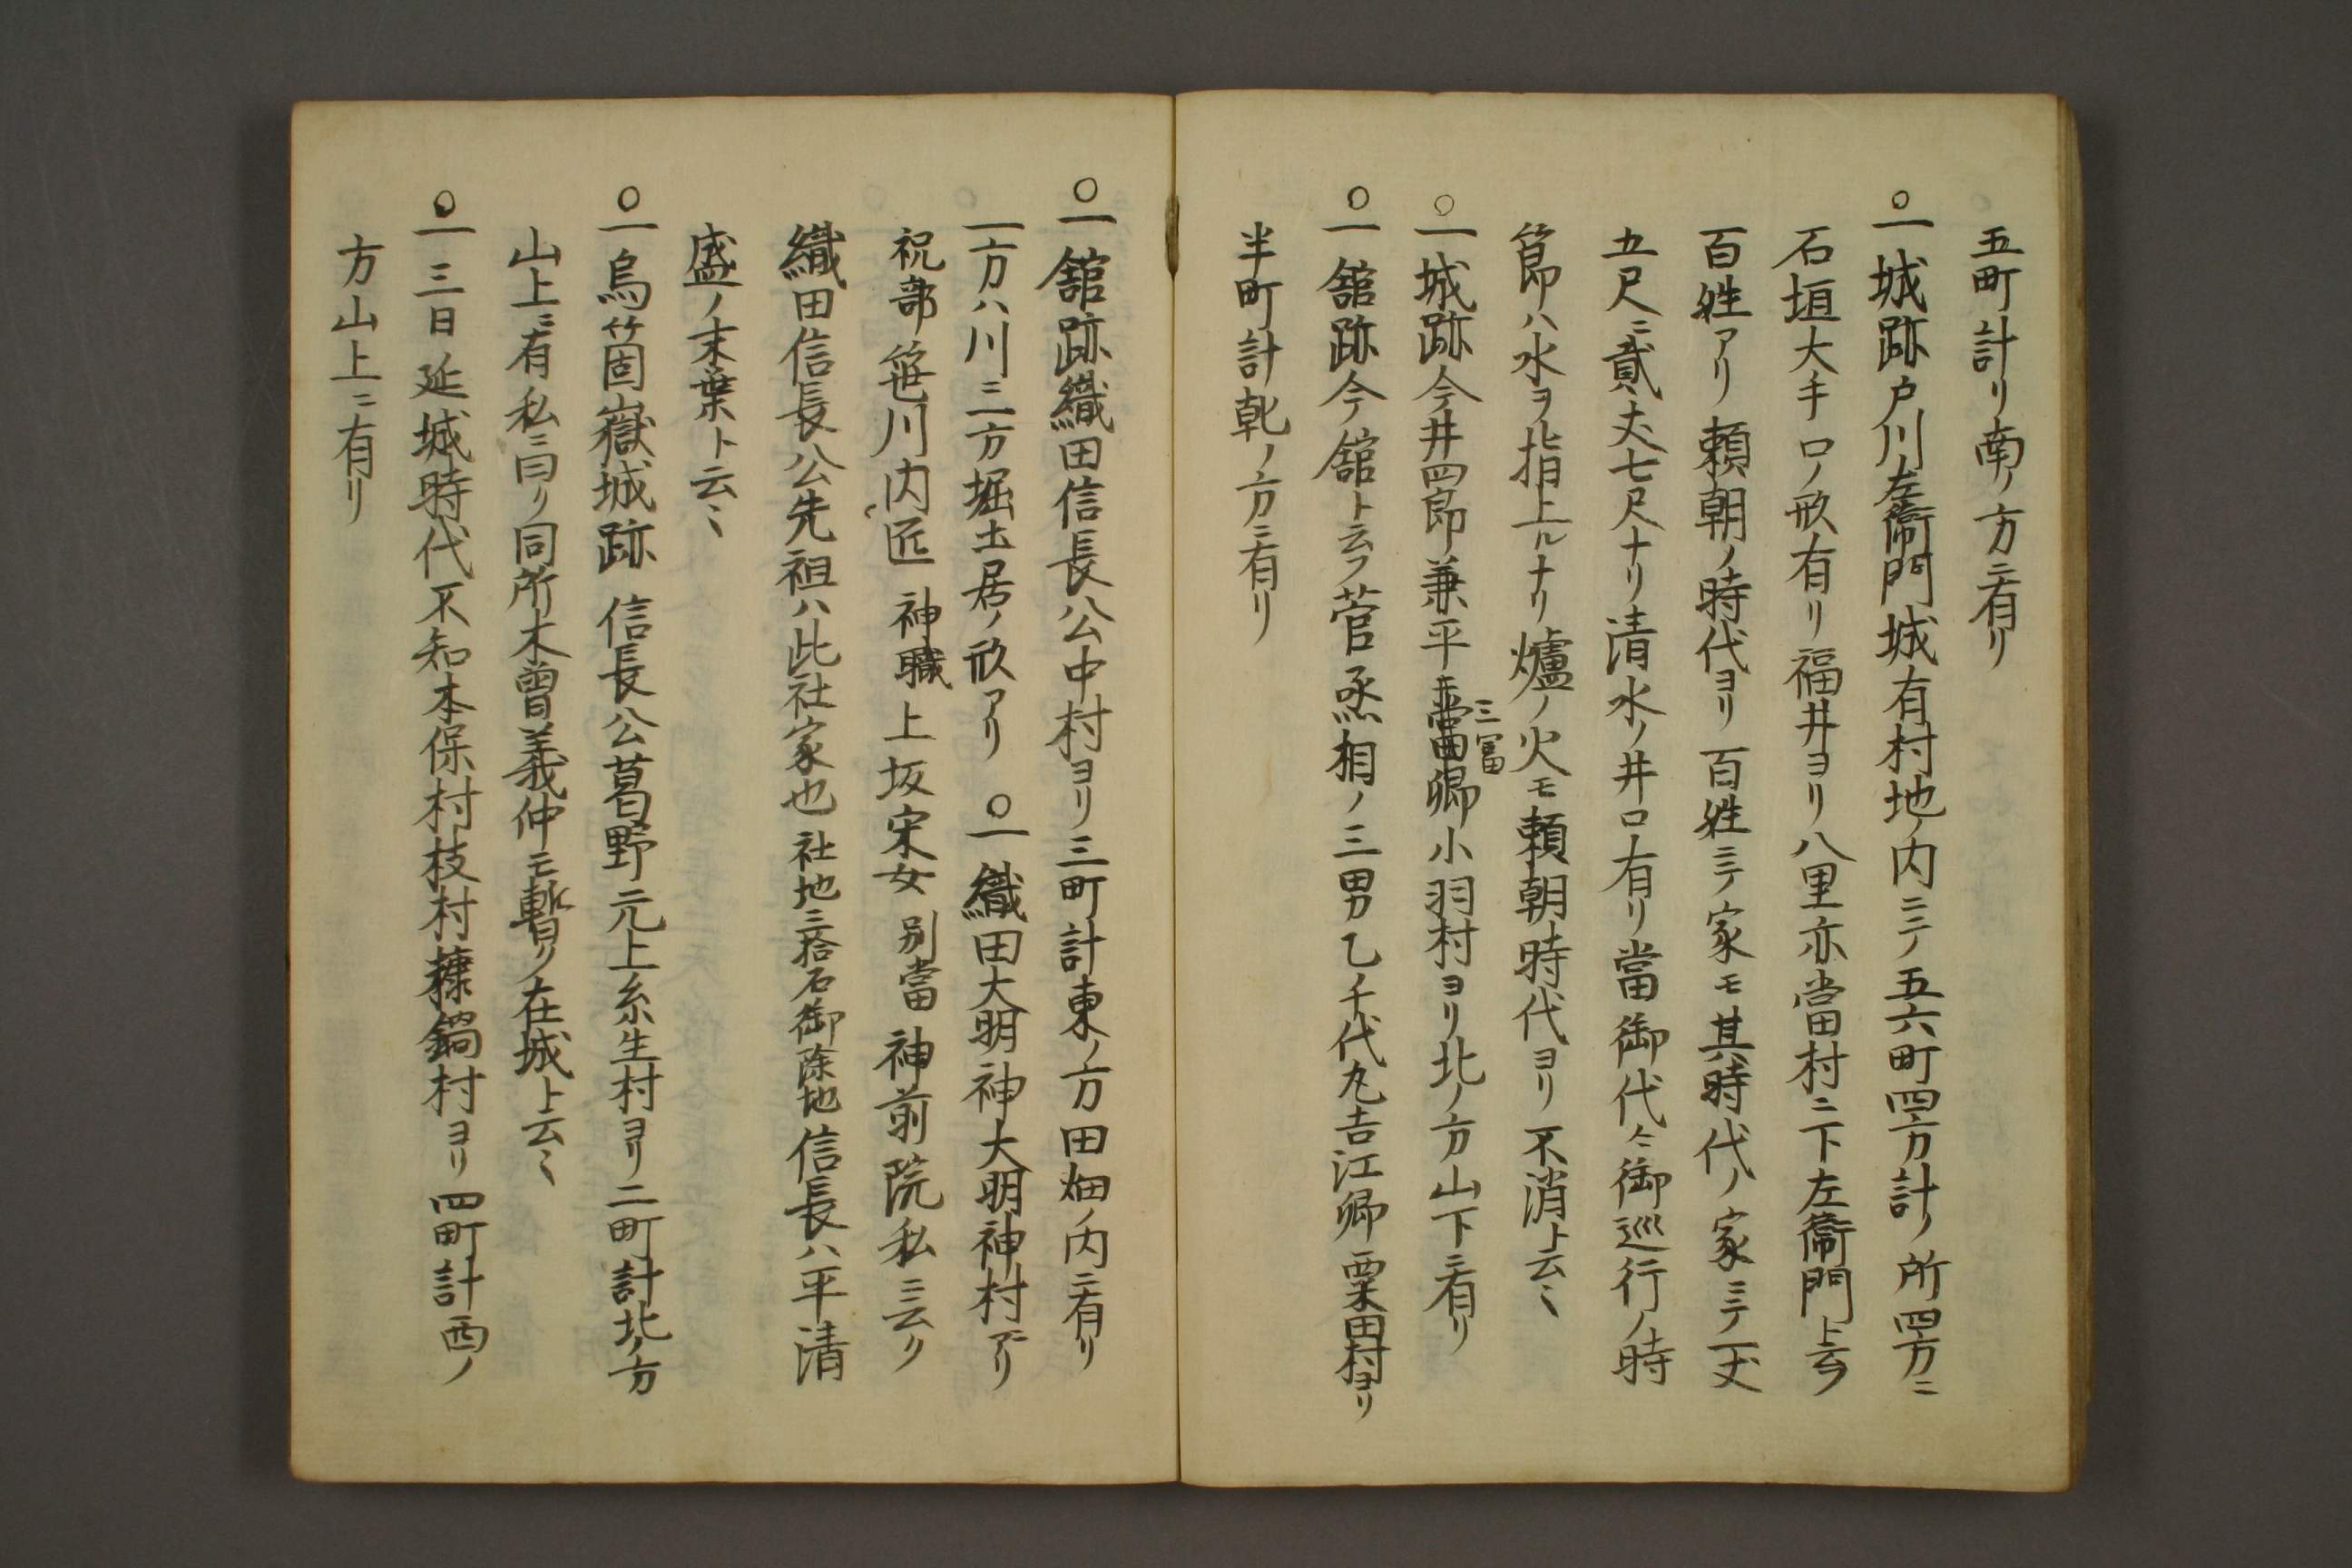 五町計リ南ノ方ニ有リ
〇一城跡戸川左衛門城有村地ノ内ニテ五六町四方計ノ所四方ニ
石垣大手口ノ形有リ福井ヨリ八里亦當村ニ下左衛門ト云フ
百姓アリ頼朝ノ時代ヨリ百姓ニテ家モ其時代ノ家ニテ一丈
五尺ニ貳丈七尺ナリ清水ノ井口有リ當御代々御巡行ノ時
節ハ水ヲ指上ルナリ爐ノ火モ頼朝時代ヨリ不消ト云〻
〇一城跡今井四郎兼平 三冨郷小羽村ヨリ北ノ方山下ニ有リ
〇一舘跡今舘ト云フ菅丞相ノ三男乙千代丸吉江郷粟田村ヨリ
半町計乾ノ方ニ有リ
〇一舘跡織田信長公中村ヨリ三町計東ノ方田畑ノ内ニ有リ
一方ハ川三方堀土居ノ形アリ 〇一織田大明神大明神村ニアリ
祝部笹川内匠 神職上坂宋女 別當神前院私ニ云ク
織田信長公先祖ハ此社家也社地三拾石御除地信長ハ平清
盛ノ末葉ト云〻
〇一烏箇嶽城跡 信長公葛野元上糸生村ヨリ二町計北ノ方
山上ニ有私ニ曰ク同所木曽義仲モ暫ク在城ト云〻
〇一三日延城時代不知本保村枝村 鍋村ヨリ四町計西ノ
方山上ニ有リ